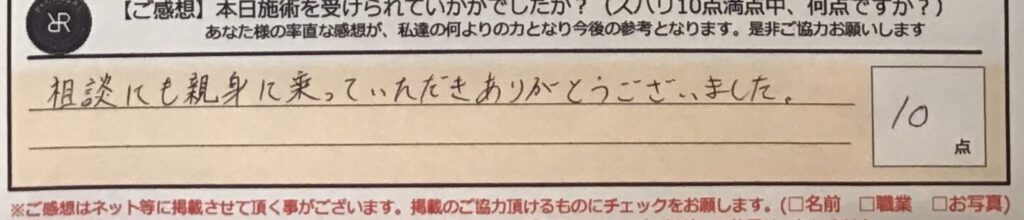 【ご感想】本日施術を受けられていかがでしたか？（ズバリ10点満点中、何点ですか？）
あなた様の率直な感想が、私達の何よりの力となり今後の参考となります。是非ご協力お願いします
相談にも親身に乗っていただきありがとうございました。
10
点
※ご感想はネット等に掲載させて頂く事がございます。掲載のご協力頂けるものにチェックをお願します。(□名前　□職業　□お写真)